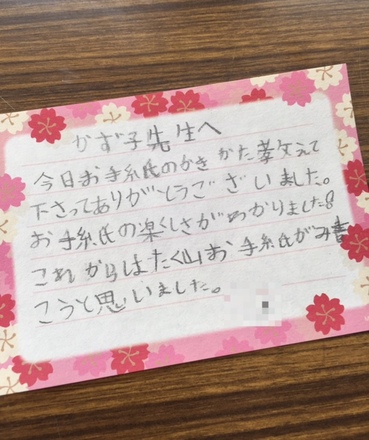 かず子先生へ
今日お手紙のかきかた教えて
下さってありがとうございました。
お手紙の楽しさがわかりました!!
これからはたく山お手紙がみ書
こうと思いました。